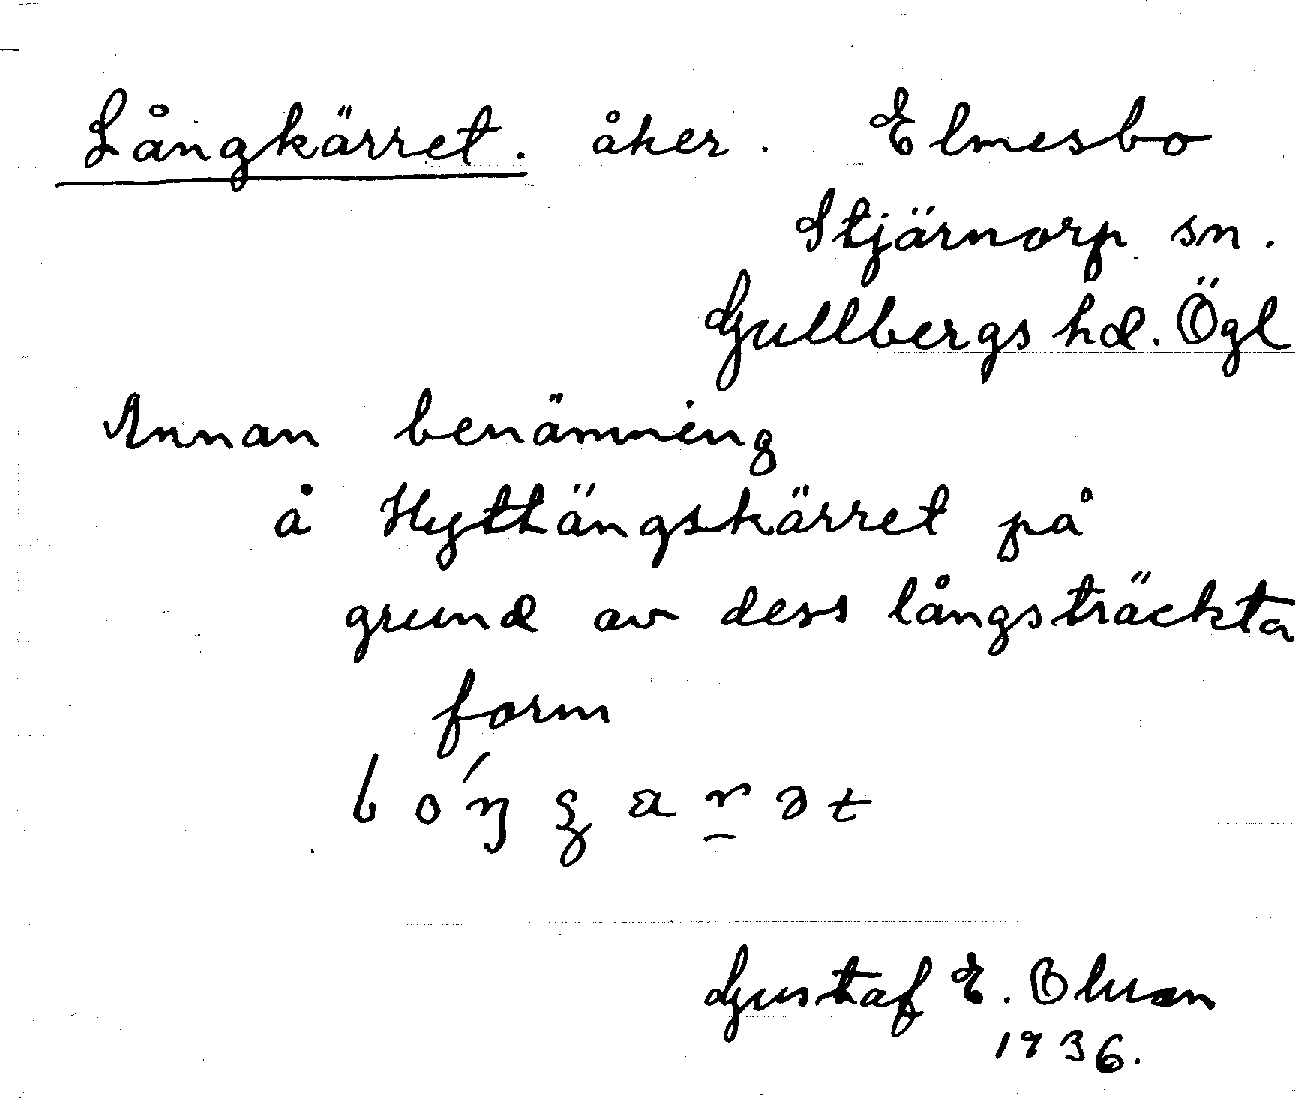 Långkärret. åker. Elmesbo
Stjärnorp sn.
Gullbergs hd. Ögl
Annan benämning
å Hyttängskärret på
grund av dess långsträckta
form
Gustaf E. Olsson
1936.